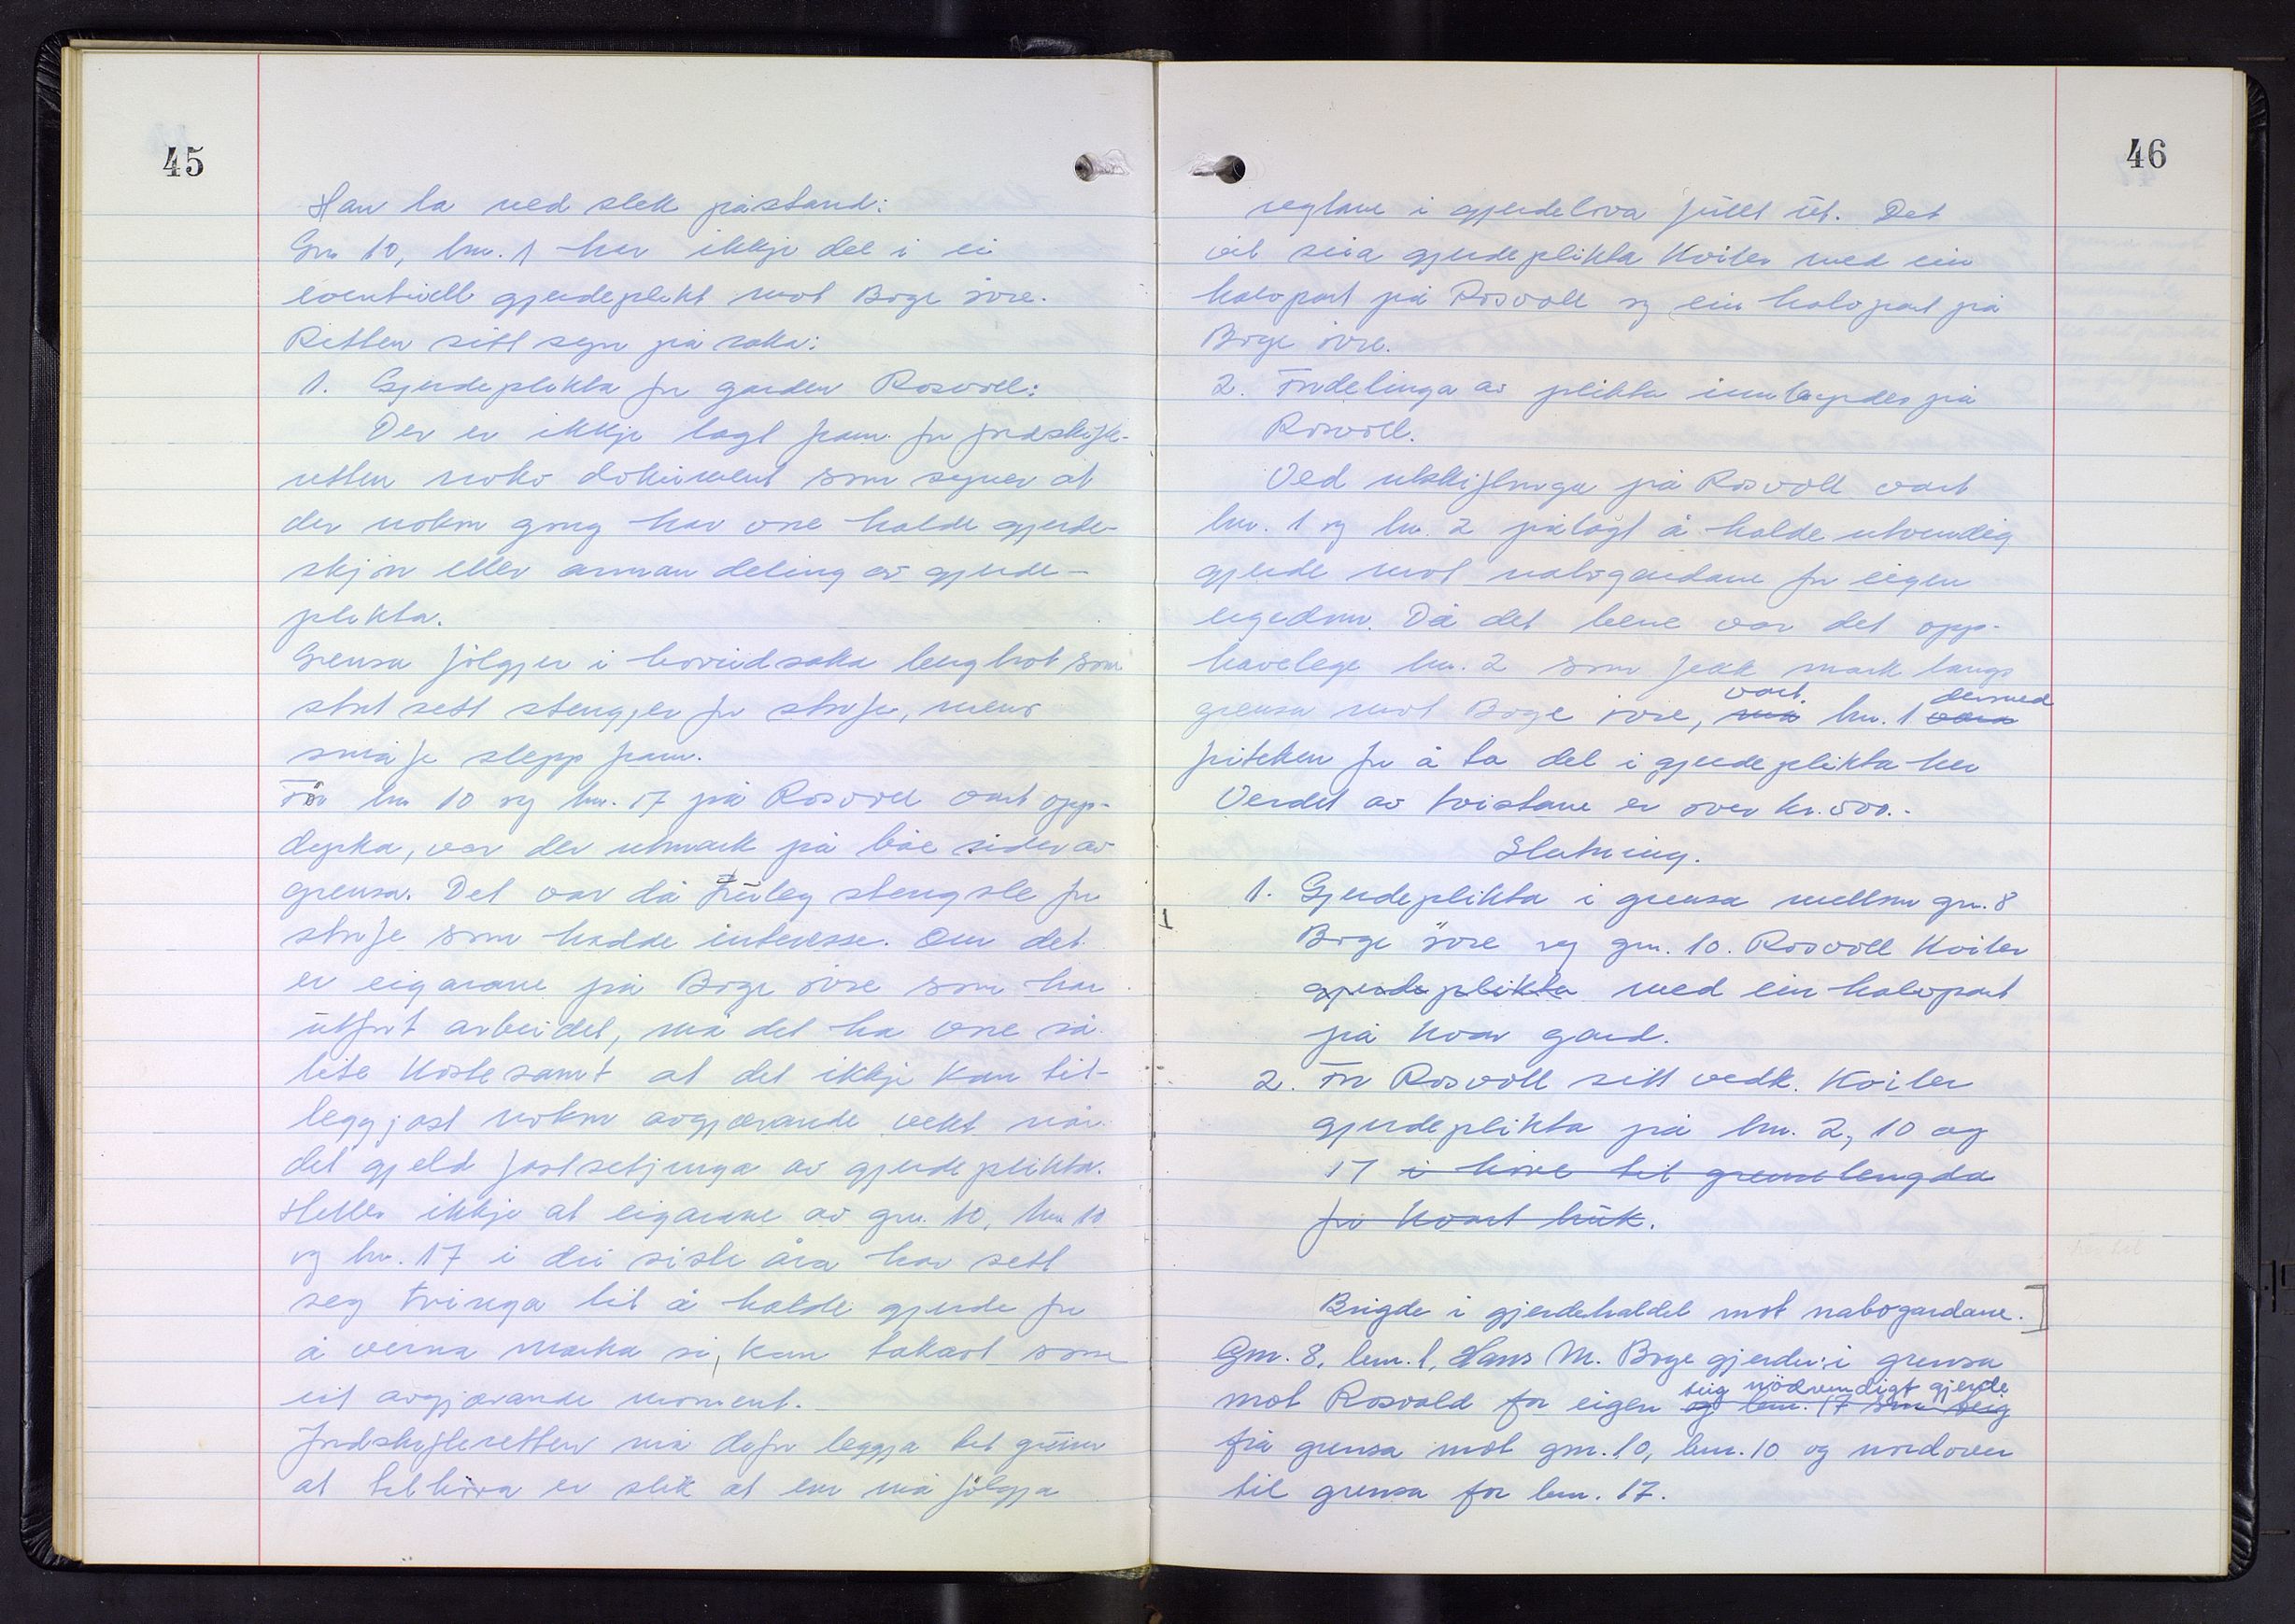 45
Han la ned slik påstand:
Gnr 10, bnr. 1 har ikkje del i ei
eventuell gjerdeplikt mot Boge øvre.
Retten sitt syn på saka:
1. Gjerdeplikta for garden Rosvoll:
Der er ikkje lagt fram for jordskifte-
retten noko dokument som syner at
der nokon gong har vore halde gjerde-
skjøn eller annan deling av gjerde-
plikta.
Grensa følgjer i hovudsaka lengbrot som
stort sett stengjer for storfe, mens
småfe slepp fram.
Før bnr 10 og bnr. 17 på Rosvoll vart opp-
dyrka, var der utmark på båe sider av
grensa. Det var då truleg stengsle for
storfe som hadde interesse. Om det
er eigarane på Boge øvre som har
utført arbeidet, må det ha vore så
lite kostesamt at det ikkje kan til-
leggjast nokon avgjerande vekt når
det gjeld fastsetjinga av gjerdeplikta.
Heller ikkje at eigarane av gnr. 10, bnr 10
og bnr. 17 i dei siste åra har sett
seg tvinga til å halde gjerde for
å verna marka si, kan takast som
eit avgjerande moment.
Jordskifteretten må difor leggja til grunn
at tilhøva er slik at em må følgja
46
reglane i gjerdelova fullt ut. Det
vil seia gjerdeplikta kviler med ein
halvpart på Rosvoll og ein halvpart på
Boge øvre.
2. Fordelinga av plikta innbyrdes på
Rosvoll.
Ved utskiftninga på Rosvoll vart
bnr. 1 og bnr. 2 pålagt å halde utvendig
gjerde mot nabogardane for eigen
eigedom. Då det berre var det opp-
havelege bnr. 2 som fekk mark langs
vart dermed
grensa mot Boge øvre, må bnr. 1 vera
friteken for å ta del i gjerdeplikta her
Verdet av tvistane er over kr. 500.-
Slutning.
1. Gjerdeplikta i grensa mellom gnr. 8
Boge øvre og gnr. 10. Rosvoll kviler
gjerdeplikta med ein halvpart
på kvar gard.
2. For Rosvoll sitt vedk. kviler
gjerdeplikta på bnr. 2, 10 og
17 i høve til grenselengda
for kvart bruk.
Brigde i gjerdehaldet mot nabogardane.]
Gnr. 8, bnr. 1, Hans M. Boge gjerder i grensa
teig nödvendigt gjerde
mot Rosvold for eigen og bnr. 17 sin teig
frå grensa mot gnr. 10, bnr. 10 og nordover
til grensa for bnr. 17.